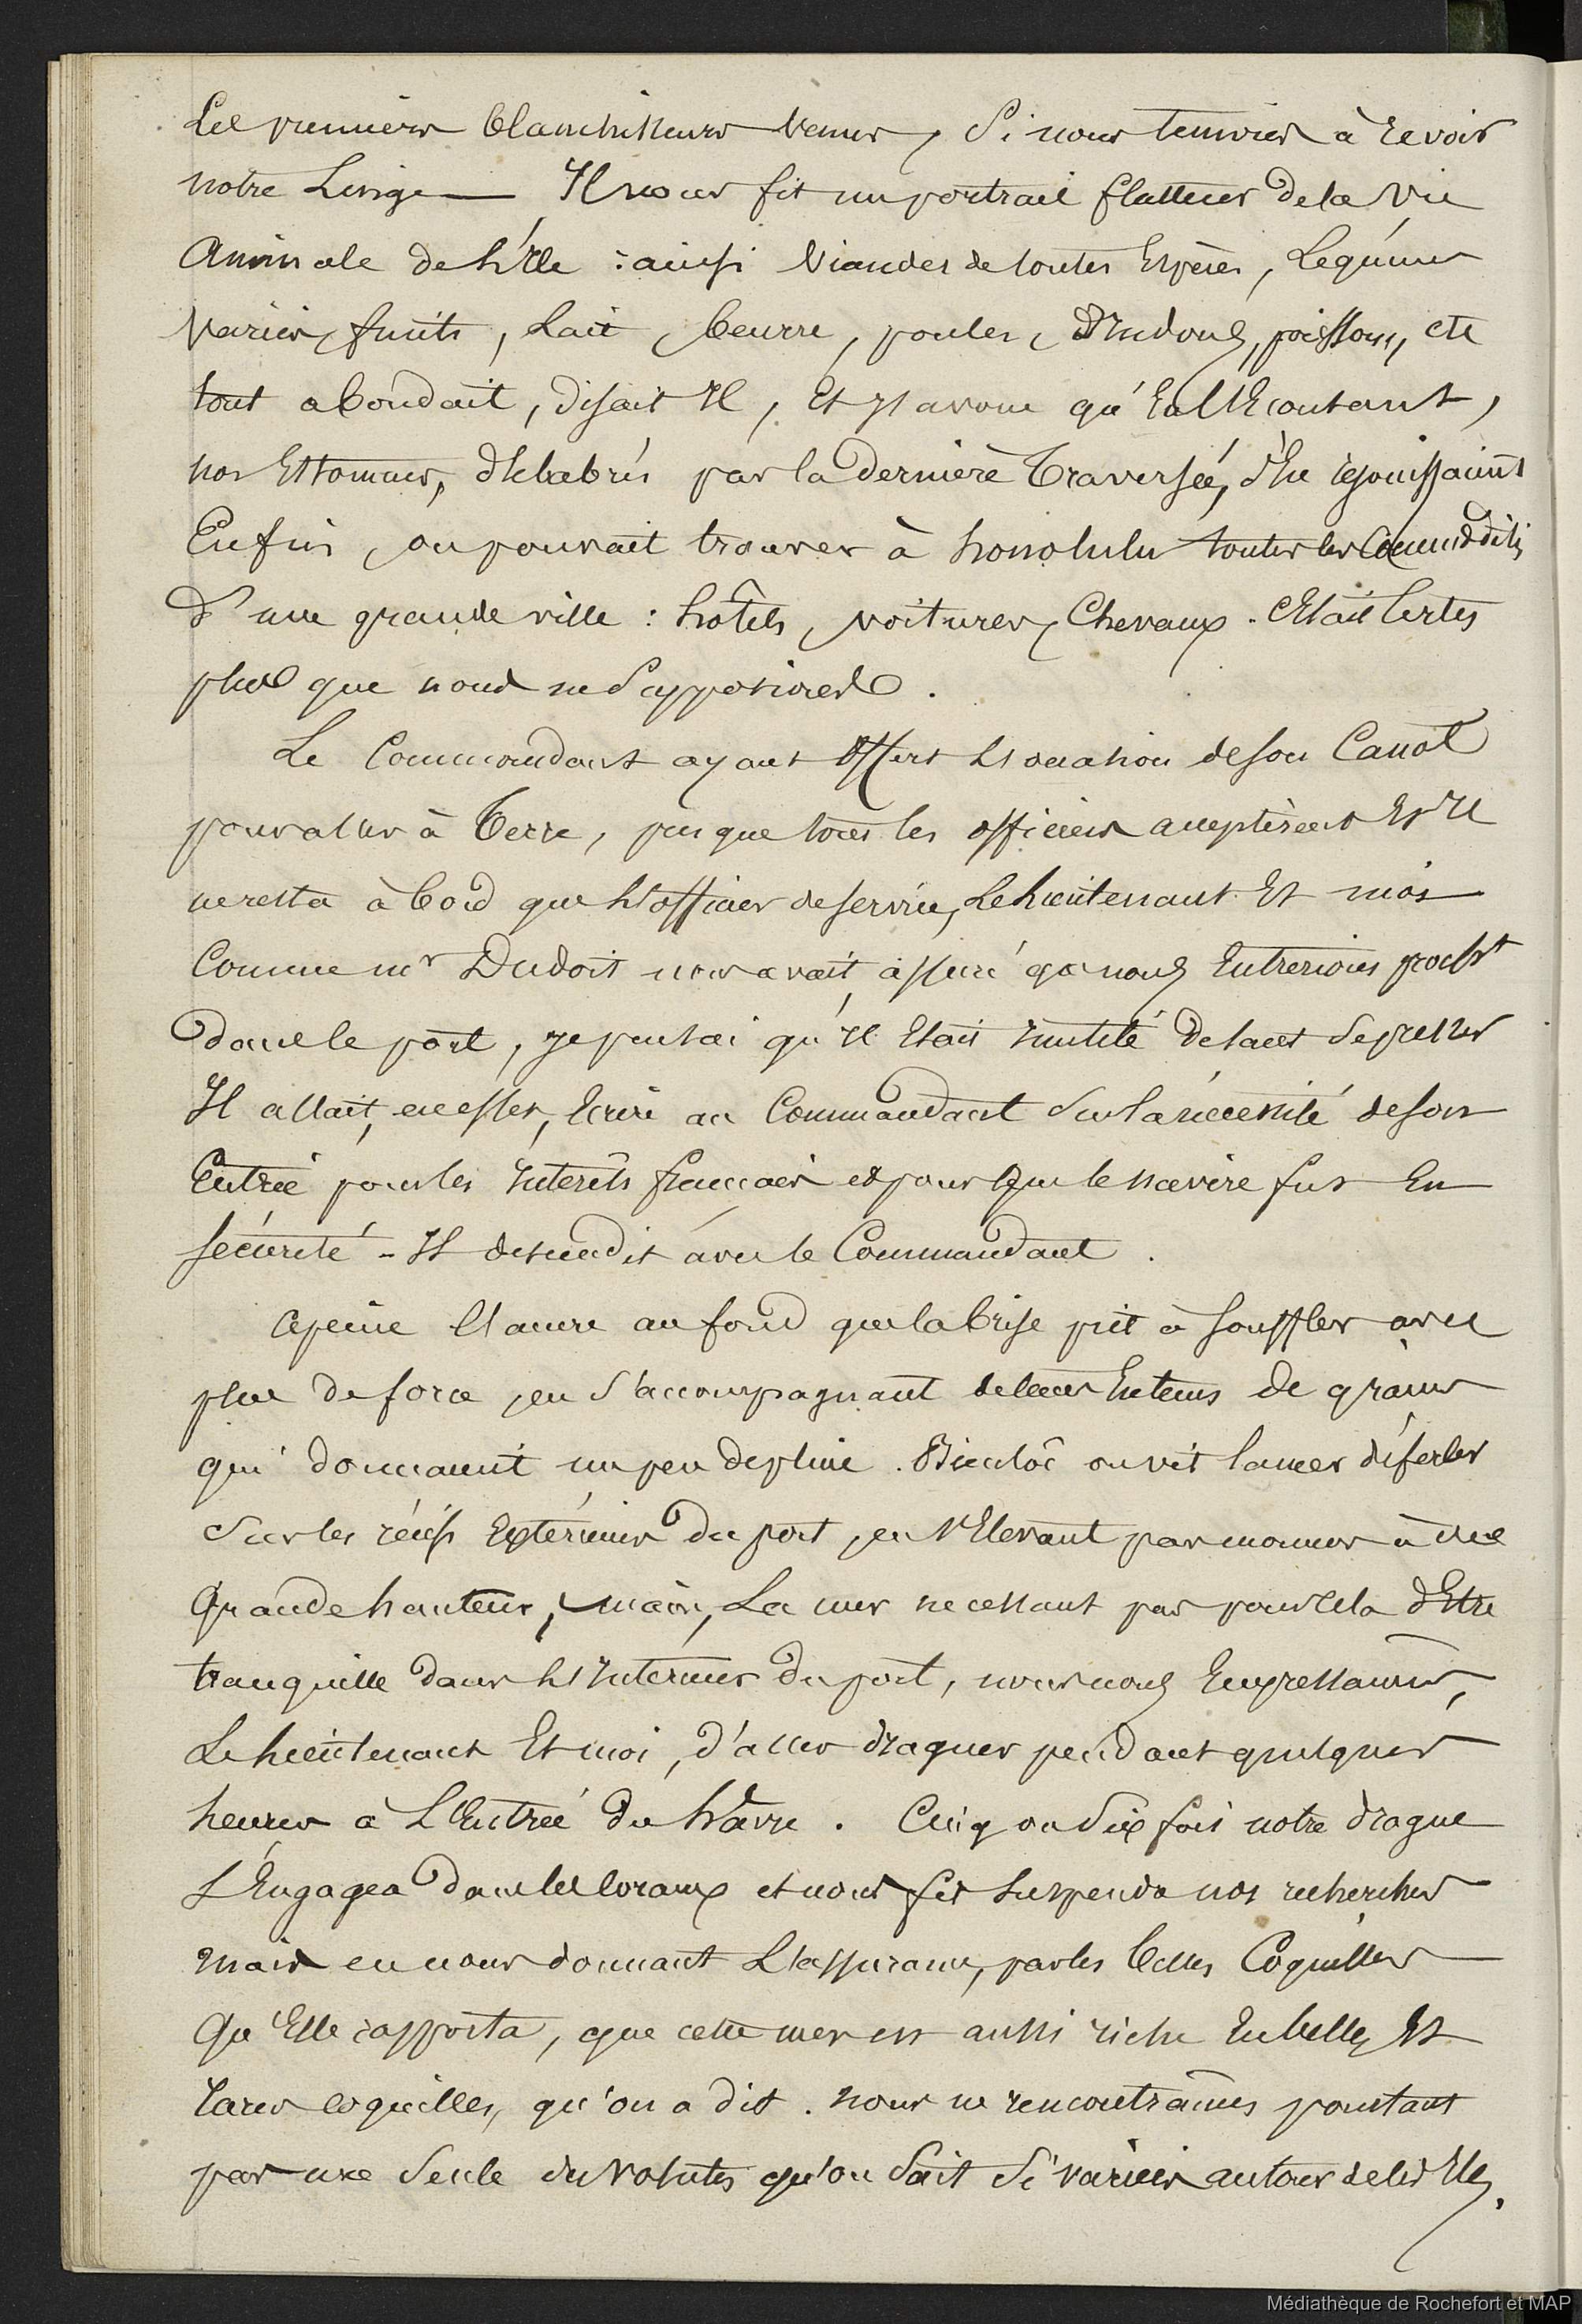 Les premiers blanchisseurs venus, si nous tenions à revoir
notre Linge — Il nous fit un portrait flatteur de la vie
Animale de L'Ile : ainsi viandes de toutes Espèces, Légumes
variés, fruits, Lait, beurre, poules, dindons, poissons, etc
tout abondait, disait Il, Et j'avoue qu'En L'Ecoutant,
nos Estomacs, délabrés par la dernière Traversée, s'En rejouissaient
Enfin, on pouvait trouver à honolulu toutes les Commodités
d'une grande ville : hôtels, voitures, Chevaux. C'Etait Certes
plus que nous ne supposions.
Le Commandant ayant offert L'occasion de son Canot
pour aller à Terre, presque tous les officiers acceptèrent Et Il
ne resta à bord que L'officier de service, Le Lieutenant Et moi
Comme mr Dudoit nous avait assuré que nous Entrerions procht
dans le port, je pensai qu'Il Etait Inutile de tant se presser
Il allait, en effet, Ecrire au Commandant sur la nécessité de son
Entrée pour les Intérêts français et pour que le navire fut En
sécurité - Il descendit avec le Commandant.
Apeine L'ancre au fond que la brise prit à souffler avec
plus de force, en s'accompagnant de tems En tems de grains
qui donnaient un peu de pluie. Bientôt on vit la mer déferler
sur les récifs Extérieurs du port, en s'Elevant par momens à une
Grande hauteur, mais, La mer ne cessant pas pour cela d'Etre
tranquille dans L'Intérieur du port, nous nous Empressames,
Le Lieutenant Et moi, d'aller draguer pendant quelques
heures à L'Entrée du hâvre. Cinq ou Six fois notre drague
s'Engagea dans les Coraux et nous fit suspendre nos recherches
mais en nous donnant L'assurance, par les belles Coquilles
Qu'Elle rapporta, que cette mer est aussi riche En belles Et
rares coquilles, qu'on a dit. nous ne rencontrâmes pourtant
pas une seule des volutes qu'on sait si variées autour de les Iles.
Médiathèque de Rochefort et MAP